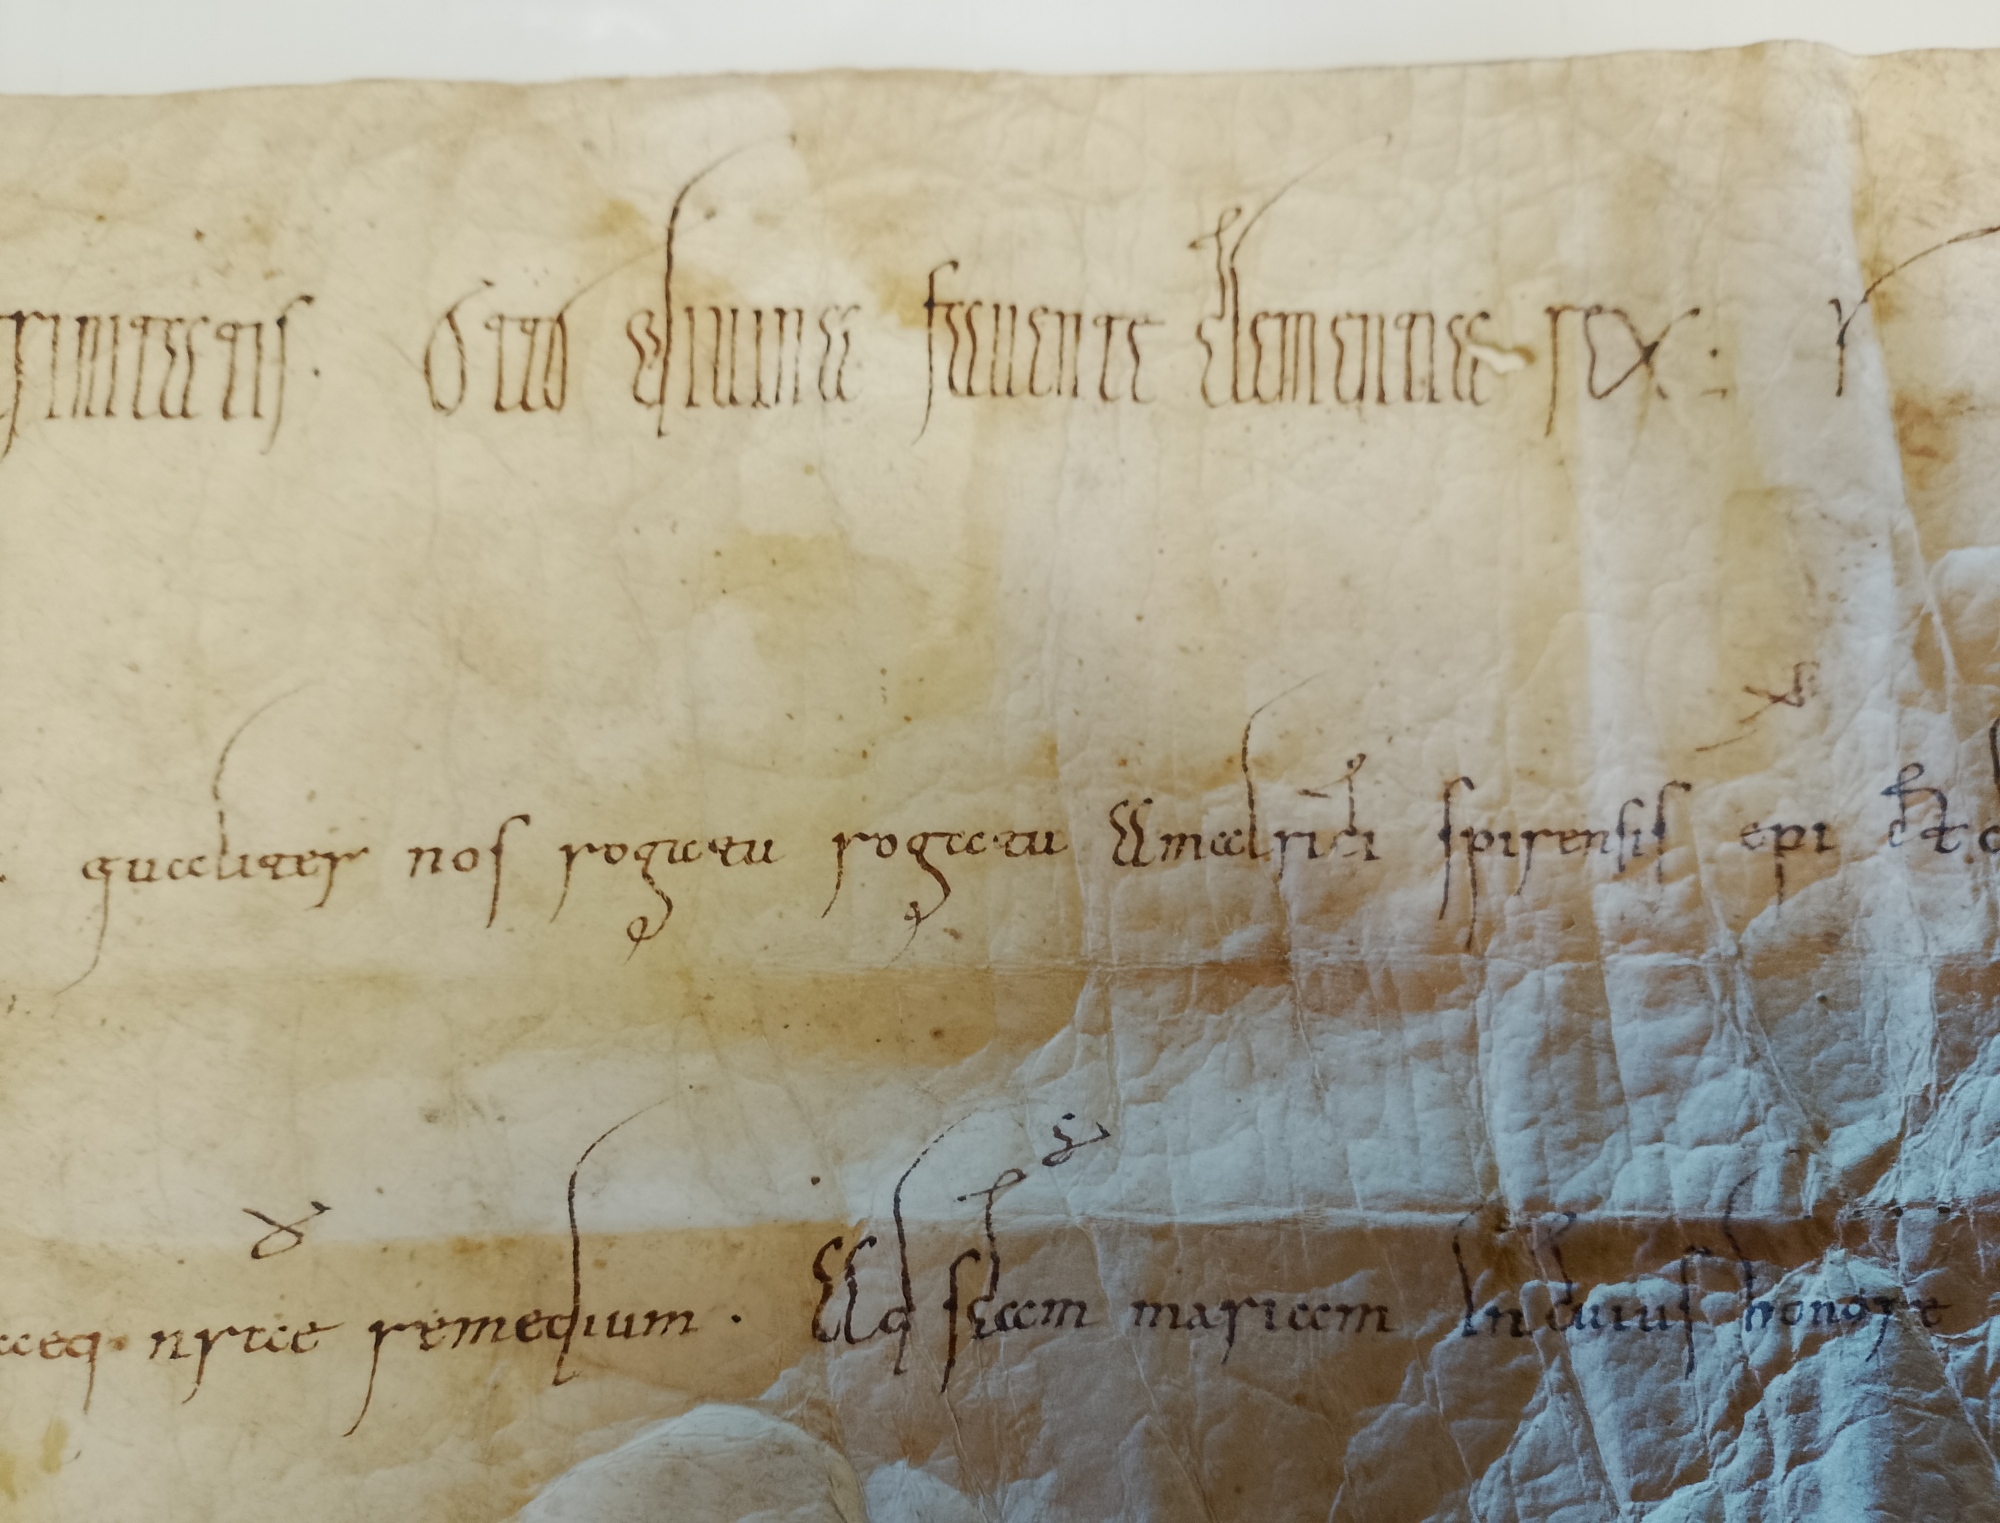 trinitatis. Otto divina favente clementia rex :
qualiter nos rogatu rogatu Amalrici spirensis epi
aeq nrae remedium . Ad scam mariam In cuius honore